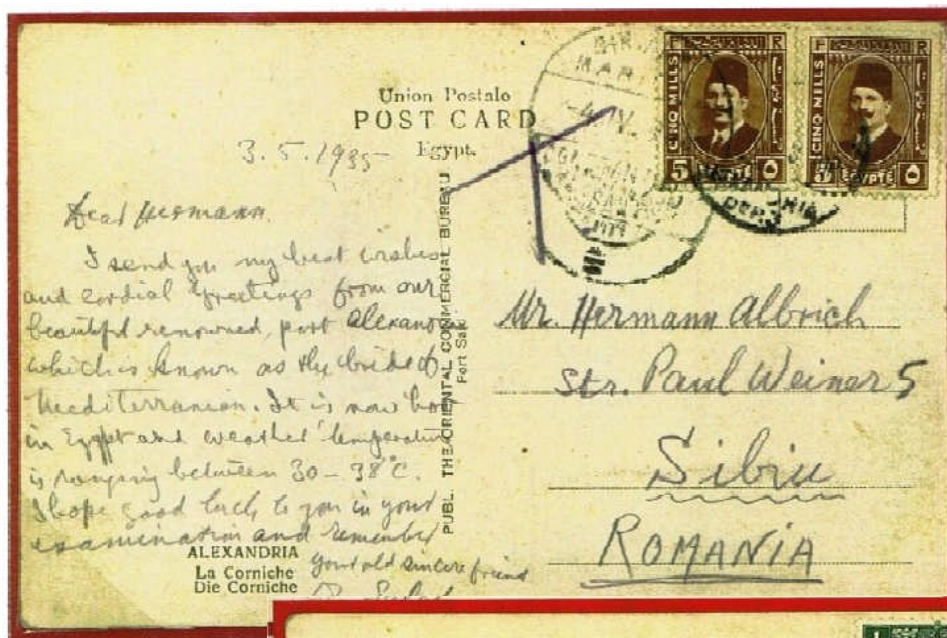 Union Postale
POST CARD
Egypt.
3.5.1935
Dear Hermann
I send you my best wishes
and cordial greetings from our
beautiful renowned, port Alexand
which is known as the bride of
Mediterranian. It is now hot
in Egypt and weather temperature
is ranging between 30 – 38°C.
I hope good luck to you in your
examination and remember
your old sincere friend
ALEXANDRIA
La Corniche
Die Corniche
PUBL. THE ORIENTAL COMMERCIAL BUREAU
Port Said
CINQ MILLS
5 EGYPTE ٥
CINQ MILLS
5 EGYPTE ٥
Mr. Hermann Albrich
Str. Paul Weiner 5
Sibiu
ROMANIA